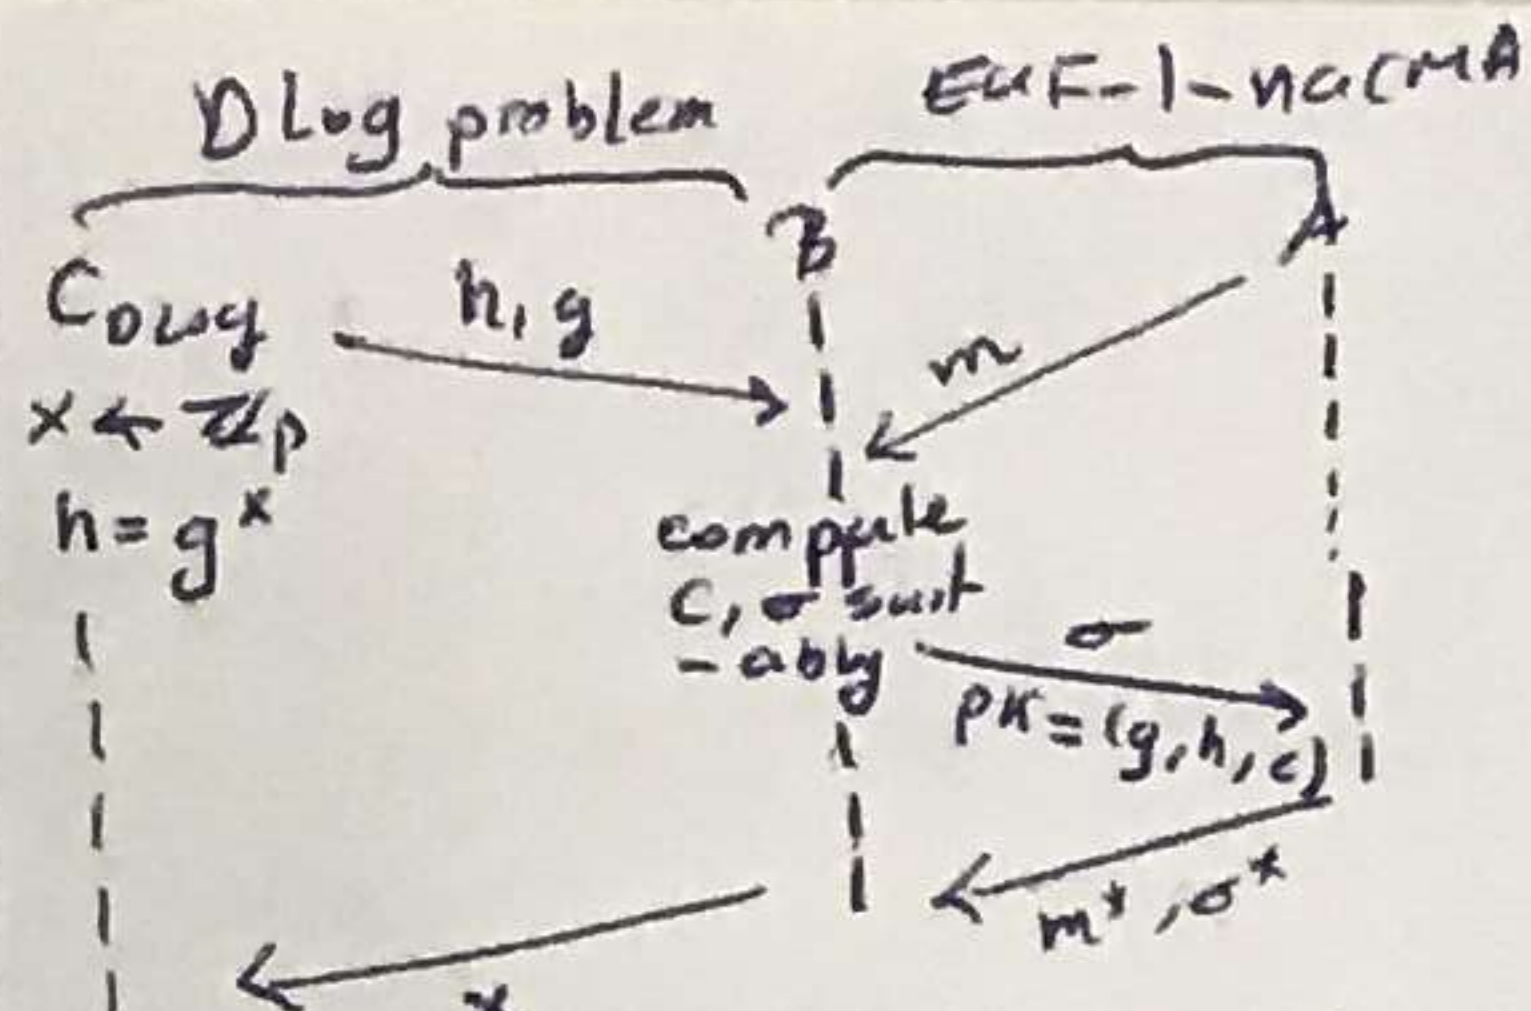 DLog problem
EUF-1-naCMA
B
A
C_DLog
h, g
m
x ← ℤ_p
h = g^x
compute
C, σ suit
-ably
σ
pk = (g, h, c)
m*, σ*
x